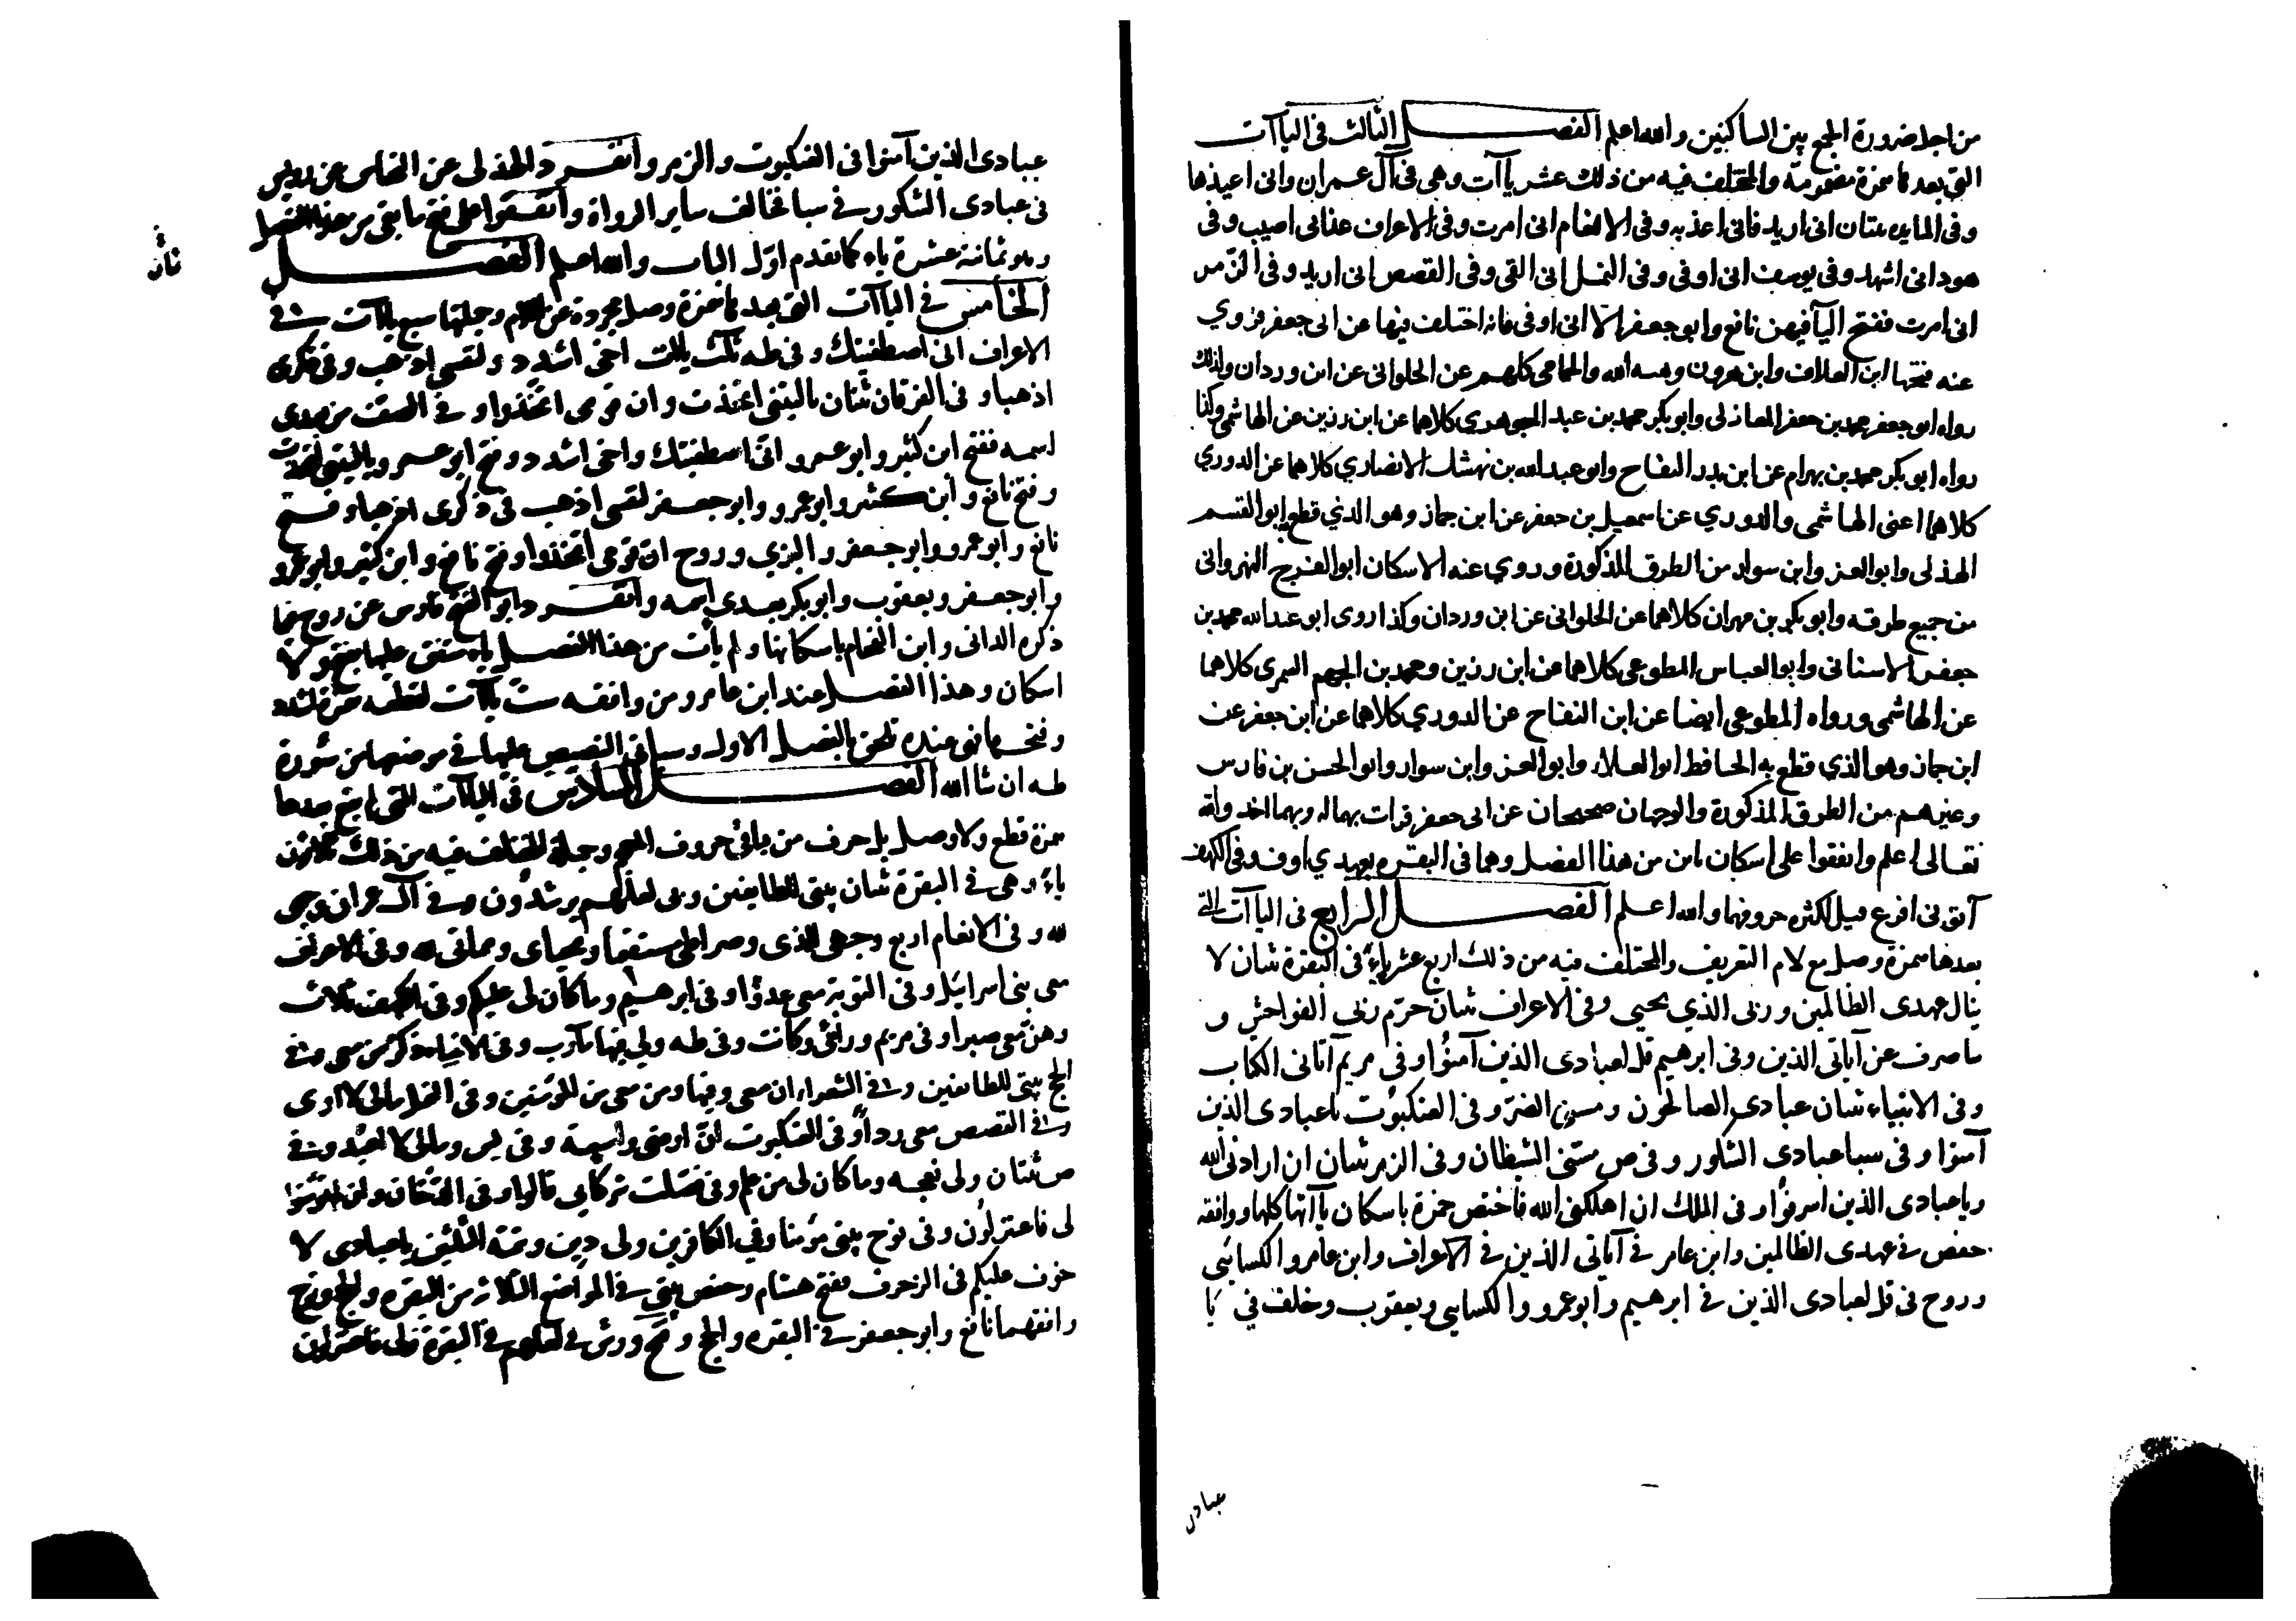 من اجل ضرورة الجمع بين الساكنين والله اعلم الفصل الثالث في الياآت
التي بعدها همزة مضمومة والمختلف فيه من ذلك عشر ياآت وهي في آل عمران واني اعيذها
وفي المايده ثنتان اني اريد فاني اعذبه وفي الانعام اني امرت وفي الاعراف عذابي اصيب وفي
هود اني اشهد وفي يوسف اني اوفي وفي النمل اني القي وفي القصص اني اريد وفي الزمر
اني امرت ففتح اليآ فيهن نافع وابو جعفر الا اني اوفي فانه اختلف فيها عن ابي جعفر فروي
عنه فتحها ابن العلاف وابن هرون وهبه الله والحمامي كلهم عن الحلواني عن ابن وردان وكذلك
رواه ابو جعفر محمد بن جعفر المغازلي وابو بكر محمد بن عبد الجوهري كلاهما عن ابن رزين عن الهاشمي وكذا
رواه ابو بكر محمد بن بهرام عن ابن بدر النفاح وابو عبد الله بن نهشل الانصاري كلاهما عن الدوري
كلاهما اعني الهاشمي والدوري عن اسمعيل بن جعفر عن ابن جماز وهو الذي قطع به ابو القسم
الهذلي وابو العز وابن سوار من الطرق المذكورة وروي عنه الاسكان ابو الفرج النهرواني
من جميع طرقه وابو بكر بن مهران كلاهما عن الحلواني عن ابن وردان وكذا روى ابو عبد الله محمد بن
جعفر الاسناني وابو العباس المطوعي كلاهما عن ابن رزين ومحمد بن الجهم السمري كلاهما
عن الهاشمي ورواه المطوعي ايضا عن ابن النفاح عن الدوري كلاهما عن ابن جعفر عن
ابن جماز وهو الذي قطع به الحافظ ابو العلاء وابو العز وابن سوار وابو الحسن بن فارس
وغيرهم من الطرق المذكورة والوجهان صحيحان عن ابي جعفر قرات بهما له وبهما اخذ والله
تعالى اعلم واتفقوا على اسكان ياين من هذا الفصل وهما في البقره بعهدي اوف وفي الكهف
آتوني افرغ قيل لكثره حروفهما والله اعلم الفصل الرابع في الياآت التي
بعدها همزة وصل مع لام التعريف والمختلف فيه من ذلك اربع عشر ياء في البقرة ثنتان لا
ينال عهدي الظالمين وربي الذي يحيى وفي الاعراف ثنتان حرم ربي الفواحش و
ساصرف عن آياتي الذين وفي ابرهيم قل لعبادى الذين آمنوا وفي مريم آتاني الكتاب
وفي الانبياء ثنتان عبادي الصالحون ومسني الضر وفي العنكبوت ياعبادى الذين
آمنوا وفي سبا عبادى الشكور وفي ص مسني الشيطان وفي الزمر ثنتان ان ارادني الله
وياعبادى الذين اسرفوا وفي الملك ان اهلكني الله فاختص حمزة باسكان ياآتها كلها ووافقه
حفص في عهدى الظالمين وابن عامر في آياتي الذين في الاعراف وابن عامر والكسايي
وروح في قل لعبادى الذين في ابرهيم وابو عمرو والكسايي ويعقوب وخلف في يا
عبادى
عبادى الذين آمنوا في العنكبوت والزمر وانفرد الهذلي عن النخاس عن رويس
في عبادى الشكور في سبا فخالف ساير الرواة واتفقوا على فتح ما بقي من هذا الفصل
وهو ثمانية عشرة ياء كما تقدم اول الباب والله اعلم الفصل
الخامس في الياآت التي بعدها همزة وصل مجردة عن اللام وجملتها سبع ياآت في
الاعراف اني اصطفيتك وفي طه ثلث ياآت اخي اشدد ولنفسي اذهب وفي ذكرى
اذهبا وفي الفرقان ثنتان ياليتني اتخذت وان قومي اتخذوا وفي الصف من بعدى
اسمه ففتح ابن كثير وابو عمرو اني اصطفيتك واخي اشدد وفتح ابو عمرو ياليتني اتخذت
وفتح نافع وابن كثير وابو عمرو وابو جعفر لنفسي اذهب في ذكرى اذهبا وفتح
نافع وابو عمرو وابو جعفر والبزي وروح ان قومي اتخذوا وفتح نافع وابن كثير وابو عمرو
وابو جعفر ويعقوب وابو بكر بعدى اسمه وانفرد ابو الفتح فارس عن روح فيما
ذكره الداني وابن الفحام باسكانها ولم يأت من هذا الفصل ياء متفق عليها بفتح ولا
اسكان وهذا الفصل عند ابن عامر ومن وافقه ست ياآت لقطعه همزة اشدد
وفتحها فهي عنده تلحق بالفصل الاول وسياتي التنصيص عليها في موضعها من سورة
طه ان شا الله الفصل السادس في الياآت التي لم يقع بعدها
همزة قطع ولا وصل بل حرف من باقي حروف المعجم وجملة المختلف فيه من ذلك ثلاثون
ياء وهي في البقرة ثنتان بيتي للطايفين وبي لعلهم يرشدون وفي آل عمران وجهي
لله وفي الانعام اربع وجهي للذى وصراطي مستقيما ومحياى ومماتي لله وفي الاعراف
معي بني اسرائيل وفي التوبة معي عدوا وفي ابرهيم وما كان لي عليكم وفي الكهف ثلاث
وهن معي صبرا وفي مريم ورائي وكانت وفي طه ولي فيها مآرب وفي الانبياء ذكر من معي وفي
الحج بيتي للطايفين وفي الشعراء ان معي وفيها ومن معي من المؤمنين وفي النمل مالي لا ارى
وفي القصص معي ردأ وفي العنكبوت ان ارضي واسعة وفي يس ومالي لا اعبد وفي
ص ثنتان ولي نعجه وما كان لي من علم وفي فصلت شركايي قالوا وفي الدخان وان لم تؤمنوا
لي فاعتزلون وفي نوح بيتي مؤمنا وفي الكافرين ولي دين وتتمة الثلثين ياعبادى لا
خوف عليكم في الزخرف ففتح هشام وحفص بيتي في المواضع الثلاثة من البقره والحج ونوح
وافقهما نافع وابو جعفر في البقره والحج وفتح ورش بي لعلهم في البقرة ولي فاعتزلون
ثان